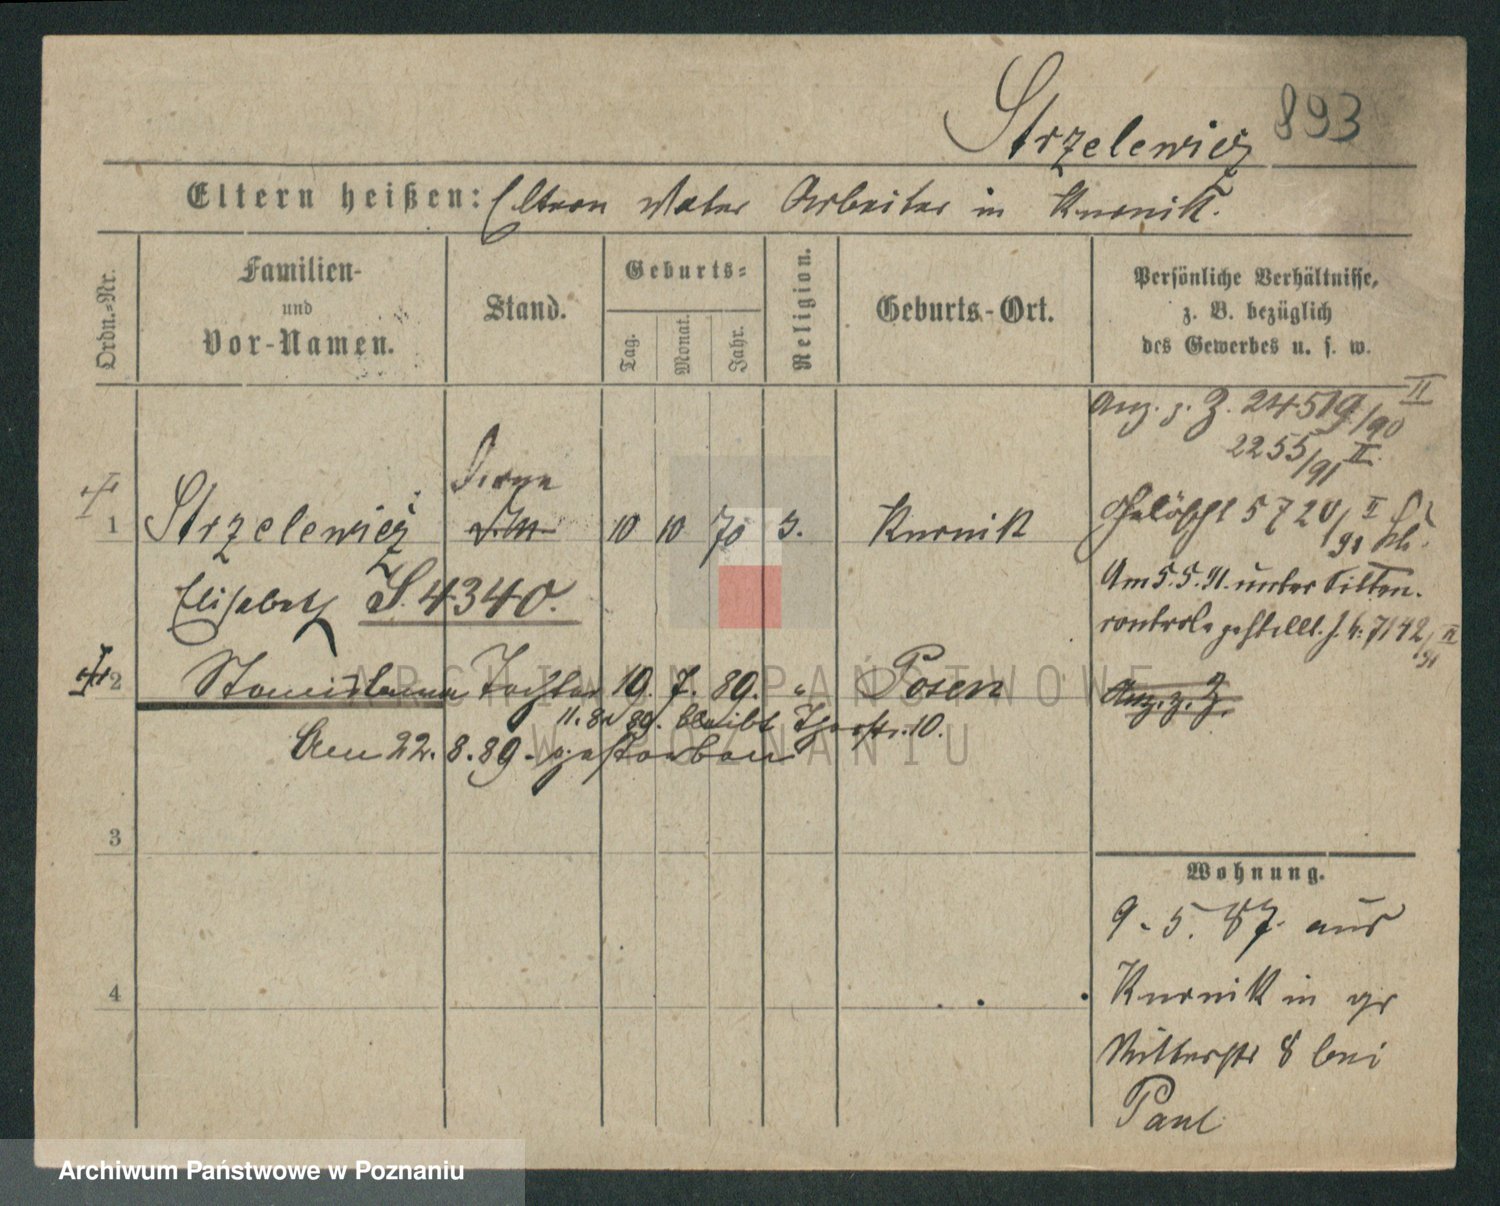 Strzelewicz 893
Eltern heißen: Eltern Vater Arbeiter in Kurnik.
Ordn.-Nr.
Familien- und Vor-Namen.
Stand.
Geburts=
Tag.
Monat.
Jahr.
Religion.
Geburts-Ort.
Persönliche Verhältnisse, z. B. bezüglich des Gewerbes u. s. w.
Anz. z. Z. 24519/90 II
2255/91 II.
Dirne
1 Strzelewicz 10 10 70 Kurnik
Gelöscht 5720/91 II
Elisabeth S. 4340.
Am 5.5.91. unter Sitten-
controle gestellt. J. N: 7142/91 II
2 Stanislawa Tochter 19. 7. 89. " Posen
Anz. z. Z.
11. 8. 89. bleibt Thorstr. 10.
Am 22. 8. 89. gestorben
3
4
Wohnung.
9. 5. 87. aus
Kurnik in gr
Ritterstr 8 bei
Paul
ARCHIWUM PAŃSTWOWE
W POZNANIU
Archiwum Państwowe w Poznaniu